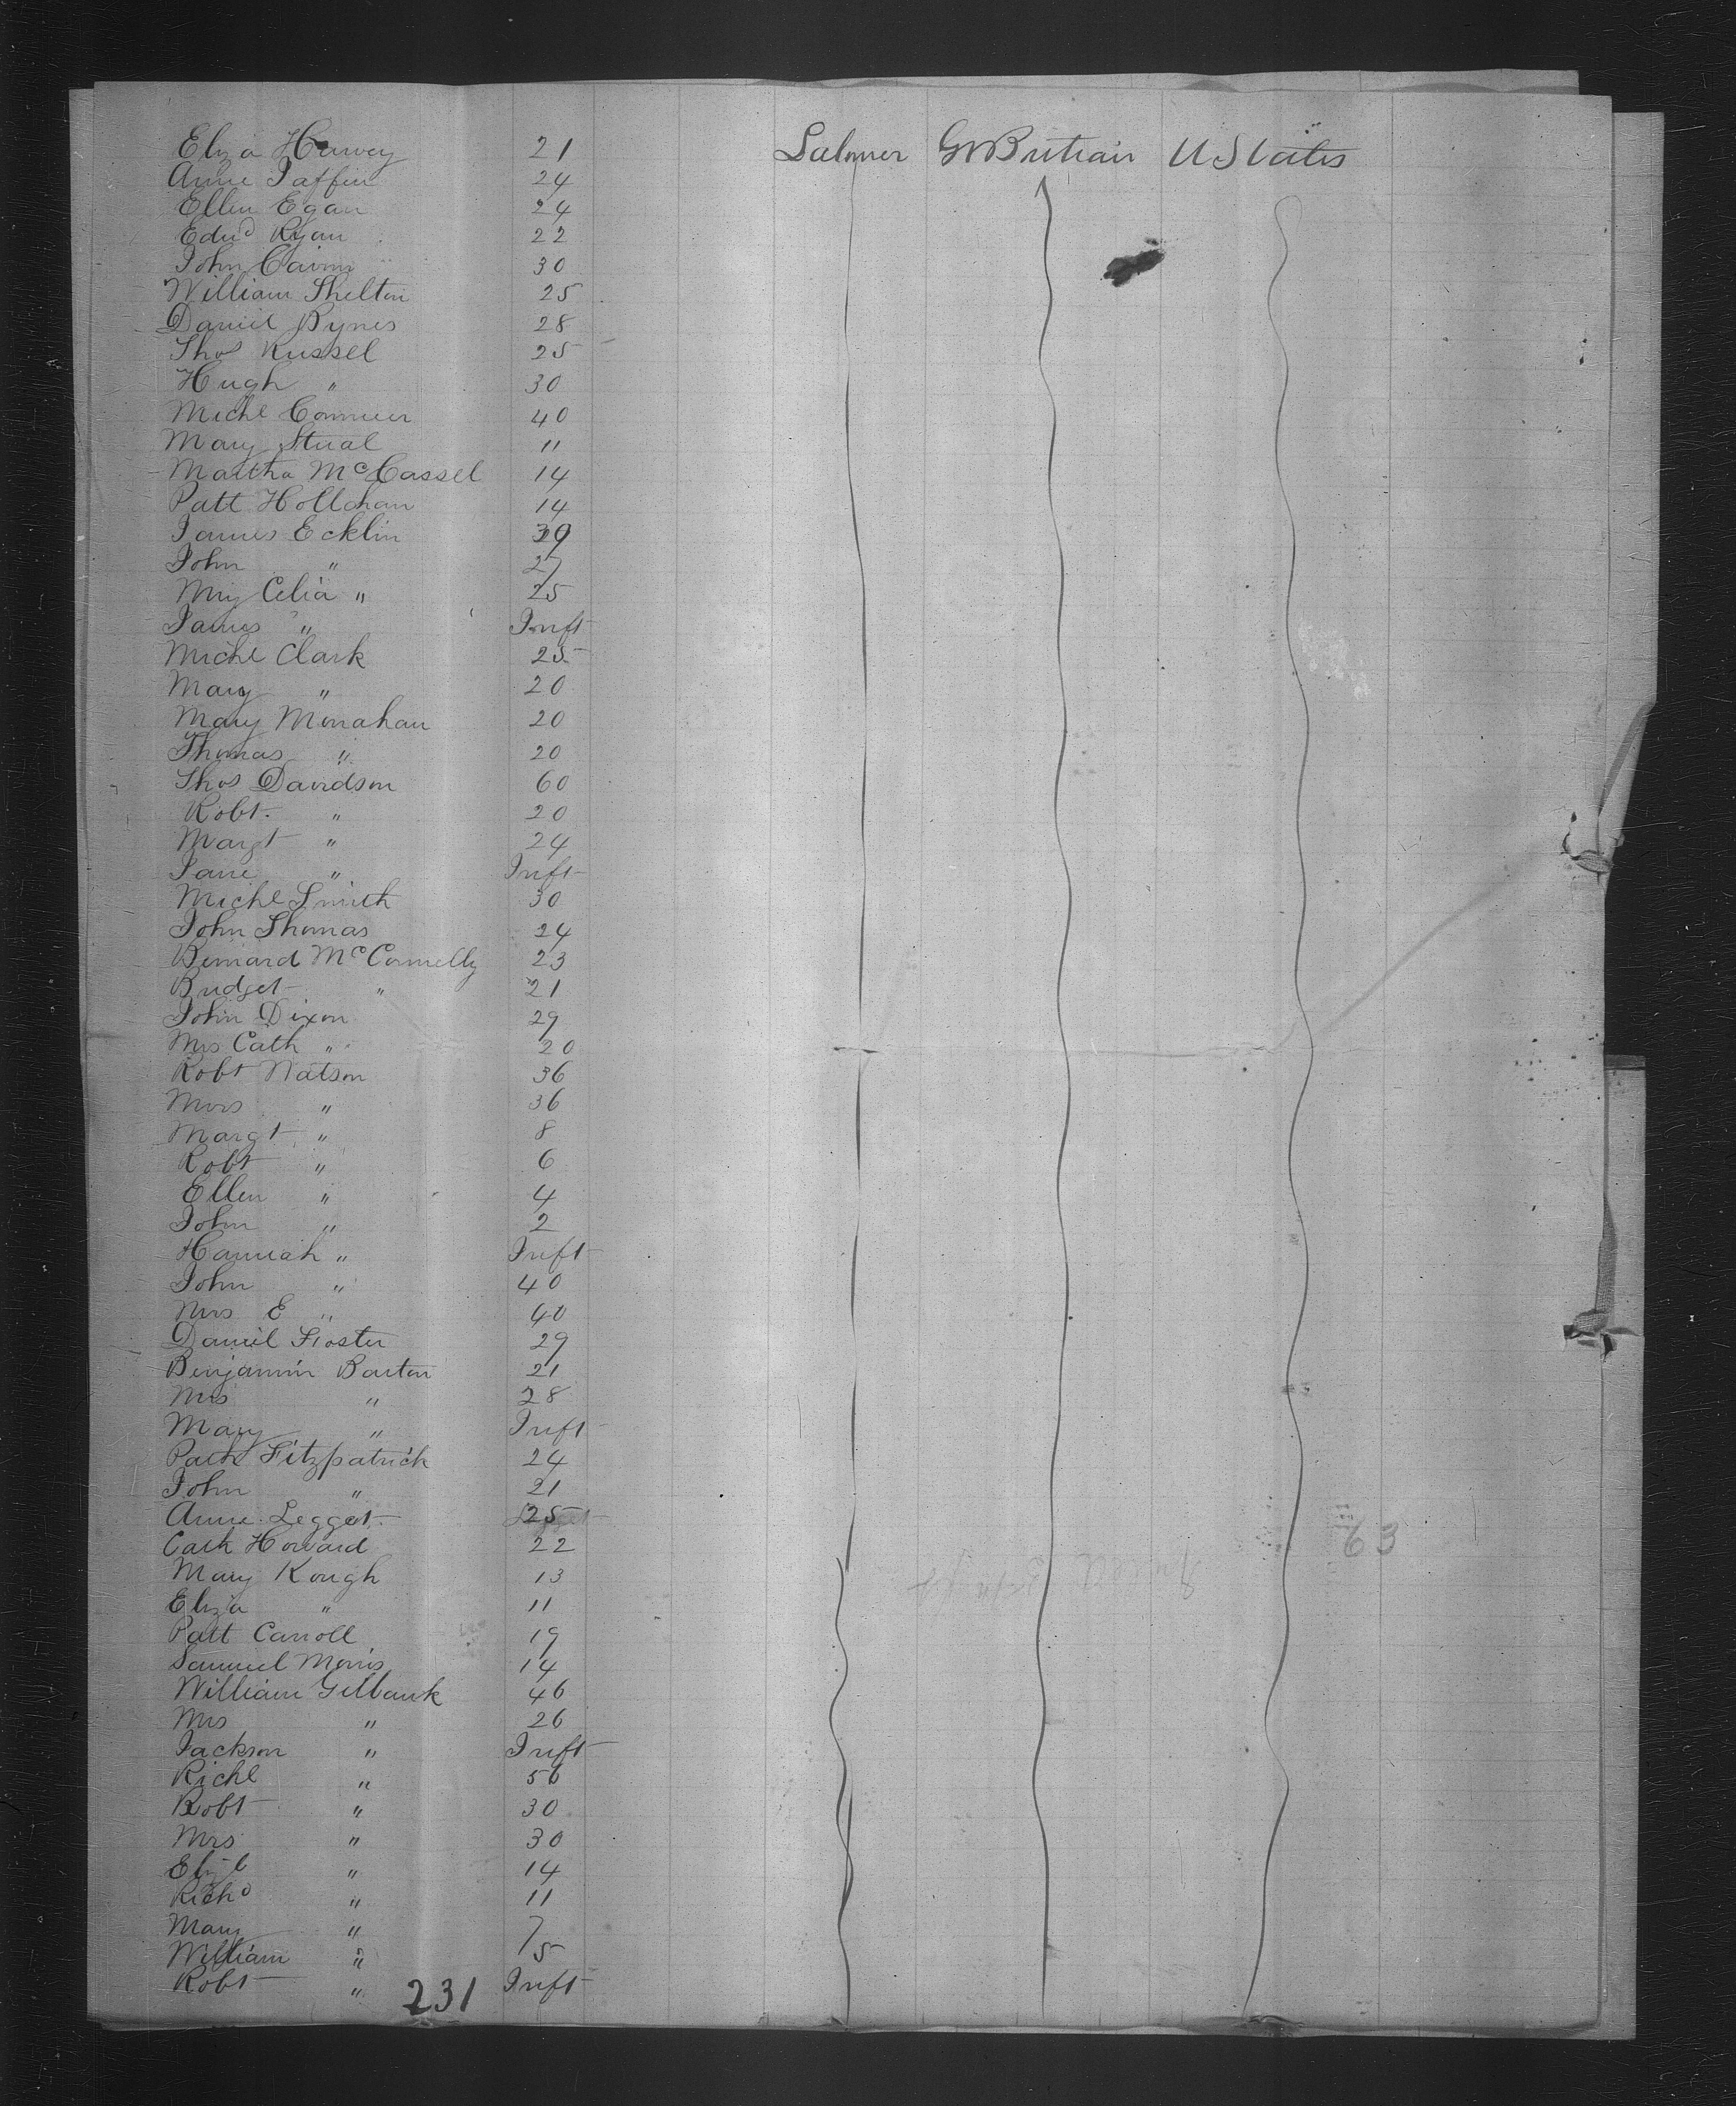 Eliza Harvey 21 Labourer Gt Britain U States
Anne Taffin 24
Ellen Egan 24
Edwd Ryan 22
John 30
William Shelton 25
Daniel Bynes 28
Thos Russel 25
Hugh " 30
Michl 40
Mary Stual 11
Martha McCassel 14
Patt Hollahan 14
James Ecklin 39
John " 27
Mrs Celia " 25
James " Inft
Michl Clark 25
Mary " 20
Mary Monahan 20
Thomas " 20
Thos Davidson 60
Robt. " 20
Margt " 24
Jane " Inft
Michl Smith 30
John Thomas 24
Bernard McConnelly 23
Bridget " 21
John Dixon 29
Mrs Cath " 20
Robt Watson 36
Mrs " 36
Margt " 8
Robt " 6
Ellen " 4
John " 2
Hannah " Inft
John " 40
Mrs E " 40
Daniel Froster 29
Benjamin Barton 21
Mrs " 28
Mary " Inft
Patk Fitzpatrick 24
John " 21
Anne Legget 25
Cath Howard 22
63
Mary Kough 13
Eliza " 11
Patt Carroll 19
Samuel Morris 14
William Gilbank 46
Mrs " 26
Jackson " Inft
Richd " 56
Robt " 30
Mrs " 30
Elizb " 14
Richd " 11
Mary " 7
William " 5
Robt " Inft
231